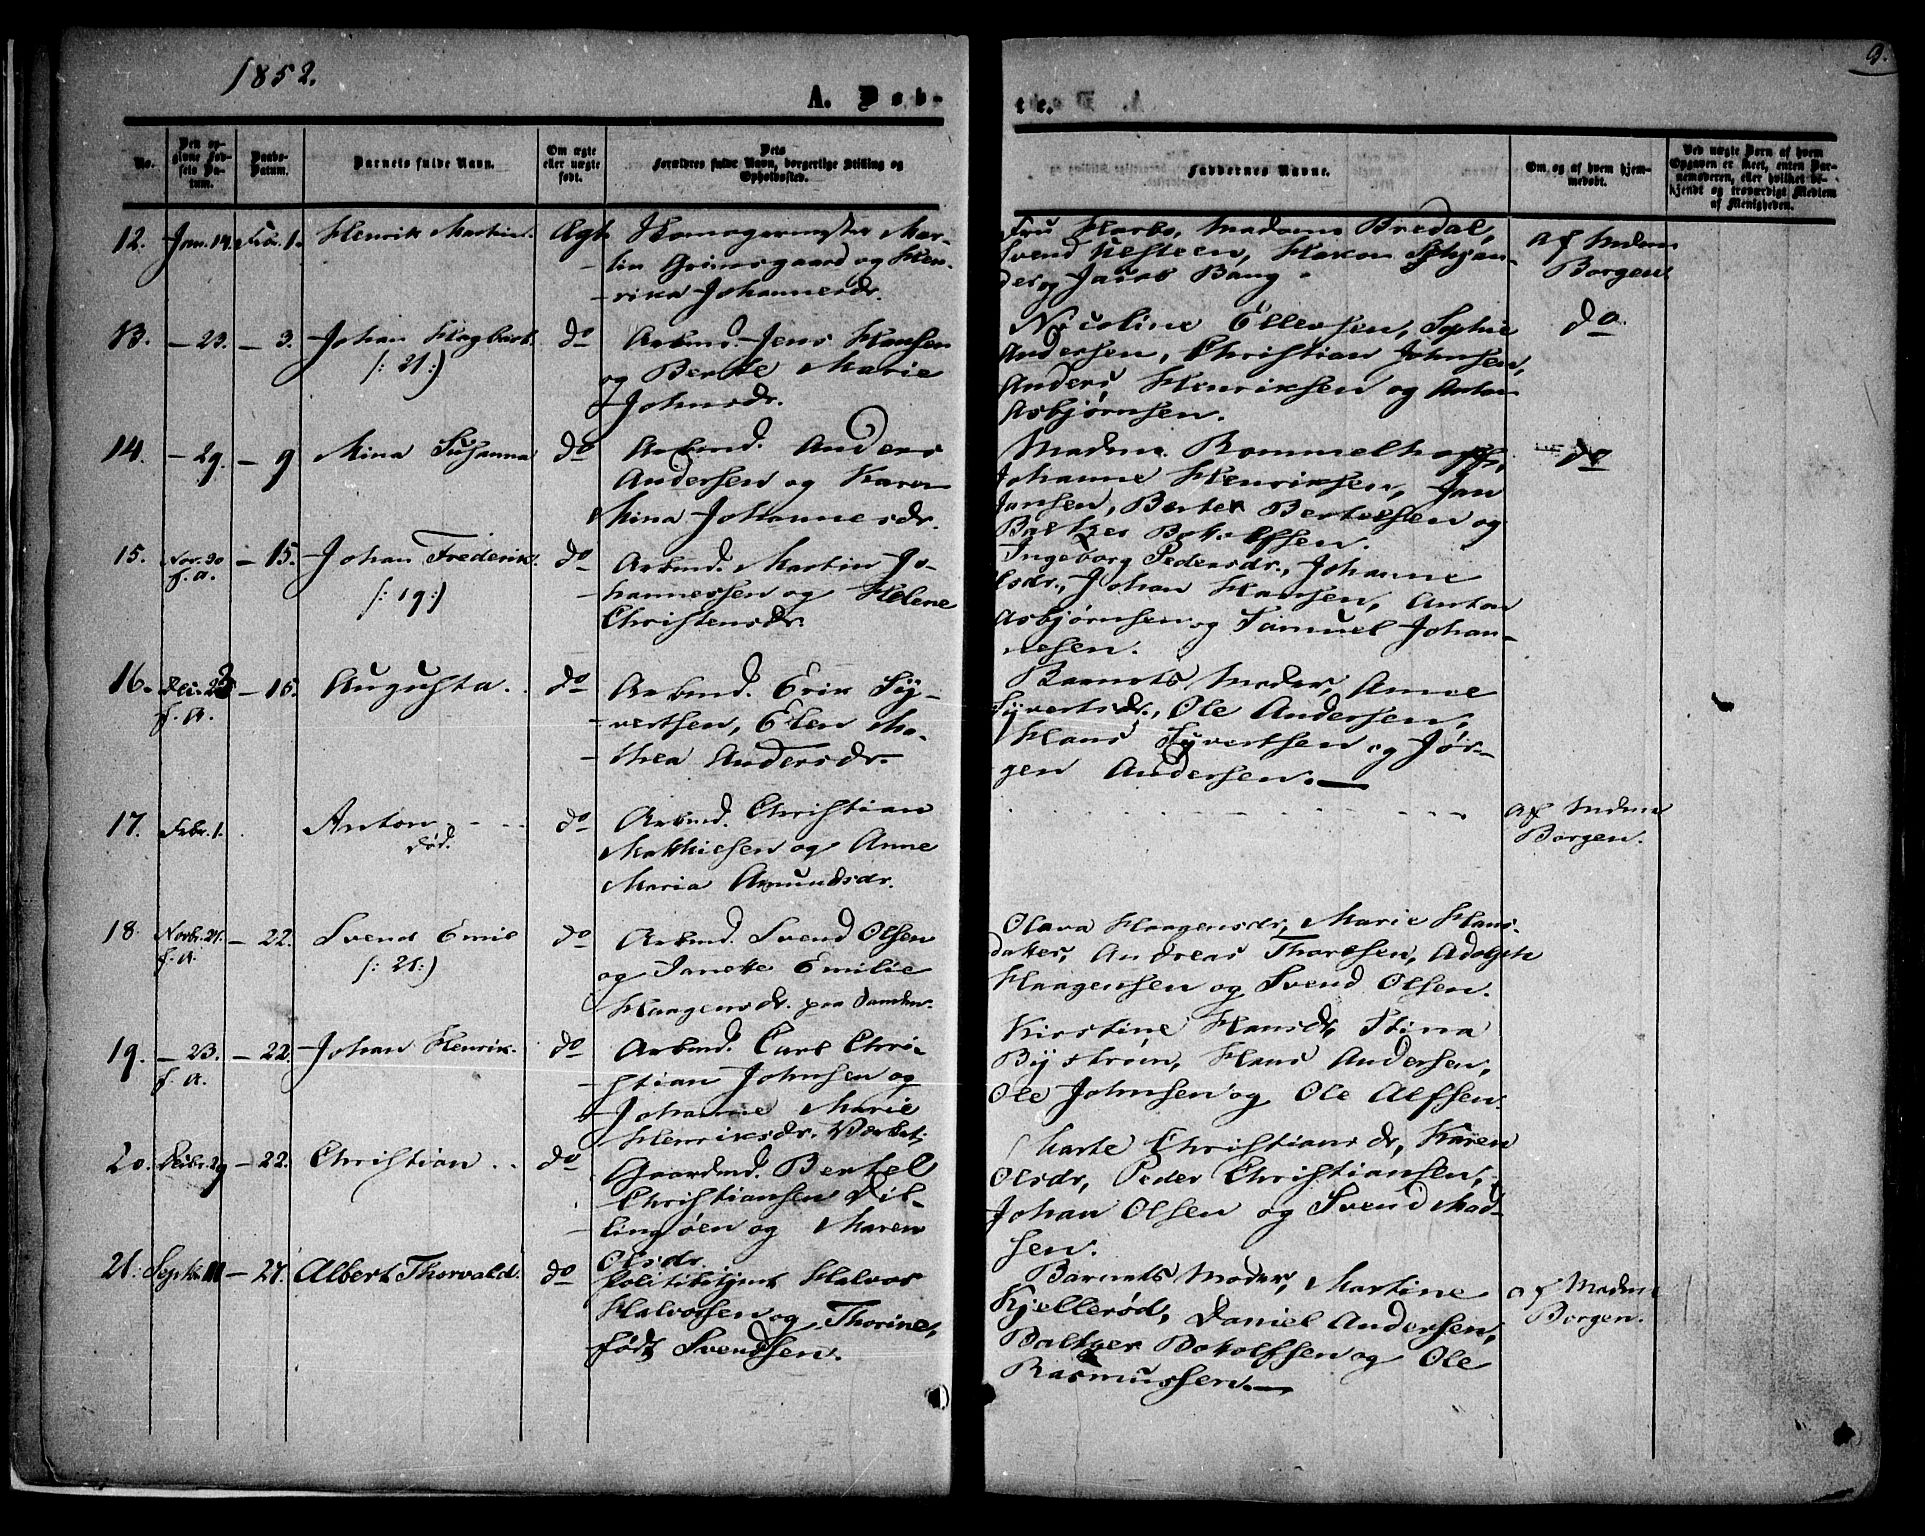 1852.
9.
A. Døb-
te.
No.
Den op-
givne Fød-
sels Da-
tum.
Daabs-
Datum.
Barnets fulde Navn.
Om ægte
eller uægte
født.
Dets
Forældres fulde Navn, borgerlige Stilling og
Opholdssted.
Faddernes Navne.
Om og af hvem hjem-
medøbt.
Ved uægte Børn af hvem
Opgaven er skeet, enten Bar-
nemoderen, eller hvilket be-
kjendt og troværdigt Medlem
af Menigheden.
12. Jan. 14. Febr. 1. Henrik Martin. Ægte Skomagermester Mar-
tin Grimsgaard og Hen-
rika Johannesdr.
Fru Harbo, Madame Bredal,
Svend Resteen, Hakon
og Jacob Bang.
af Mdme
Borgen
13. - 23. - 3. Johan Hagbart. do Arbmd. Jens Hansen
/: 21 :/ og Berthe Marie
Johnsdr.
Nicoline Ellevsen, Sophie
Andersen, Christian Johnsen,
Anders Henriksen og Anton
Asbjørnsen.
do
14. - 29. - 9 Mina Susanna do Arbmd. Anders
Andersen og Karen
Mina Johannesdr.
Madme. Rommelhoff,
Johanne Henriksen, Jan
Jansen, Bertel Bertelsen og
Baltzer Botolfsen.
do
15. Nov. 30 - 15. Johan Frederik. do Arbmd. Martin Jo-
f. A. /: 19 :/ hannessen og Helene
Christensdr.
Ingeborg Pedersdr., Johanne
Olsdr., Johan Hansen, Anton
Asbjørnsen og Samuel Johan-
nesen.
16. Dec. 23 - 15. Augusta. do Arbmd. Erik Sy-
f. A. vertsen, Elen Ma-
thea Andersdr.
Barnets Moder, Anne
Syvertsdr., Ole Andersen,
Hans Syvertsen og Jør-
gen Andersen.
17. Febr. 1. Anton do Arbmd. Christian
død. Mathiesen og Anne
Maria Amundsdr.
af Mdme
Borgen.
18. Novbr. 21. - 22. Svend Emil do Arbmd. Svend Olsen
f. A. /: 21 :/ og Janette Emilie
Haagensdr. paa Damden.
Olava Haagensdr, Marie Hans-
datter, Andreas Thoresen, Adolph
Haagensen og Svend Olsen.
19. - 23. - 22. Johan Henrik. do Arbmd. Carl Chri-
f. A. stian Johnsen og
Johanne Marie
Henriksdr. Værket
Kirstine Hansdr, Stina
Bystrøm, Hans Andersen,
Ole Johnsen og Ole Alfsen.
20. Decbr. 29 - 22. Christian do Gaardmd. Bertel
Christiansen Dil-
lingøen og Maren
Olsdr.
Marte Christiansdr, Karen
Olsdr, Peder Christiansen,
Johan Olsen og Svend Mad-
sen.
21. Septbr. - 21. Albert Thorvald. do Politibetjent Halvor
Halvorsen og Thorine,
født Svendsen.
Barnets Moder, Martine
Kjellerød, Daniel Andersen,
Baltzer Botolfsen og Ole
Rasmussen.
af Madme
Borgen.